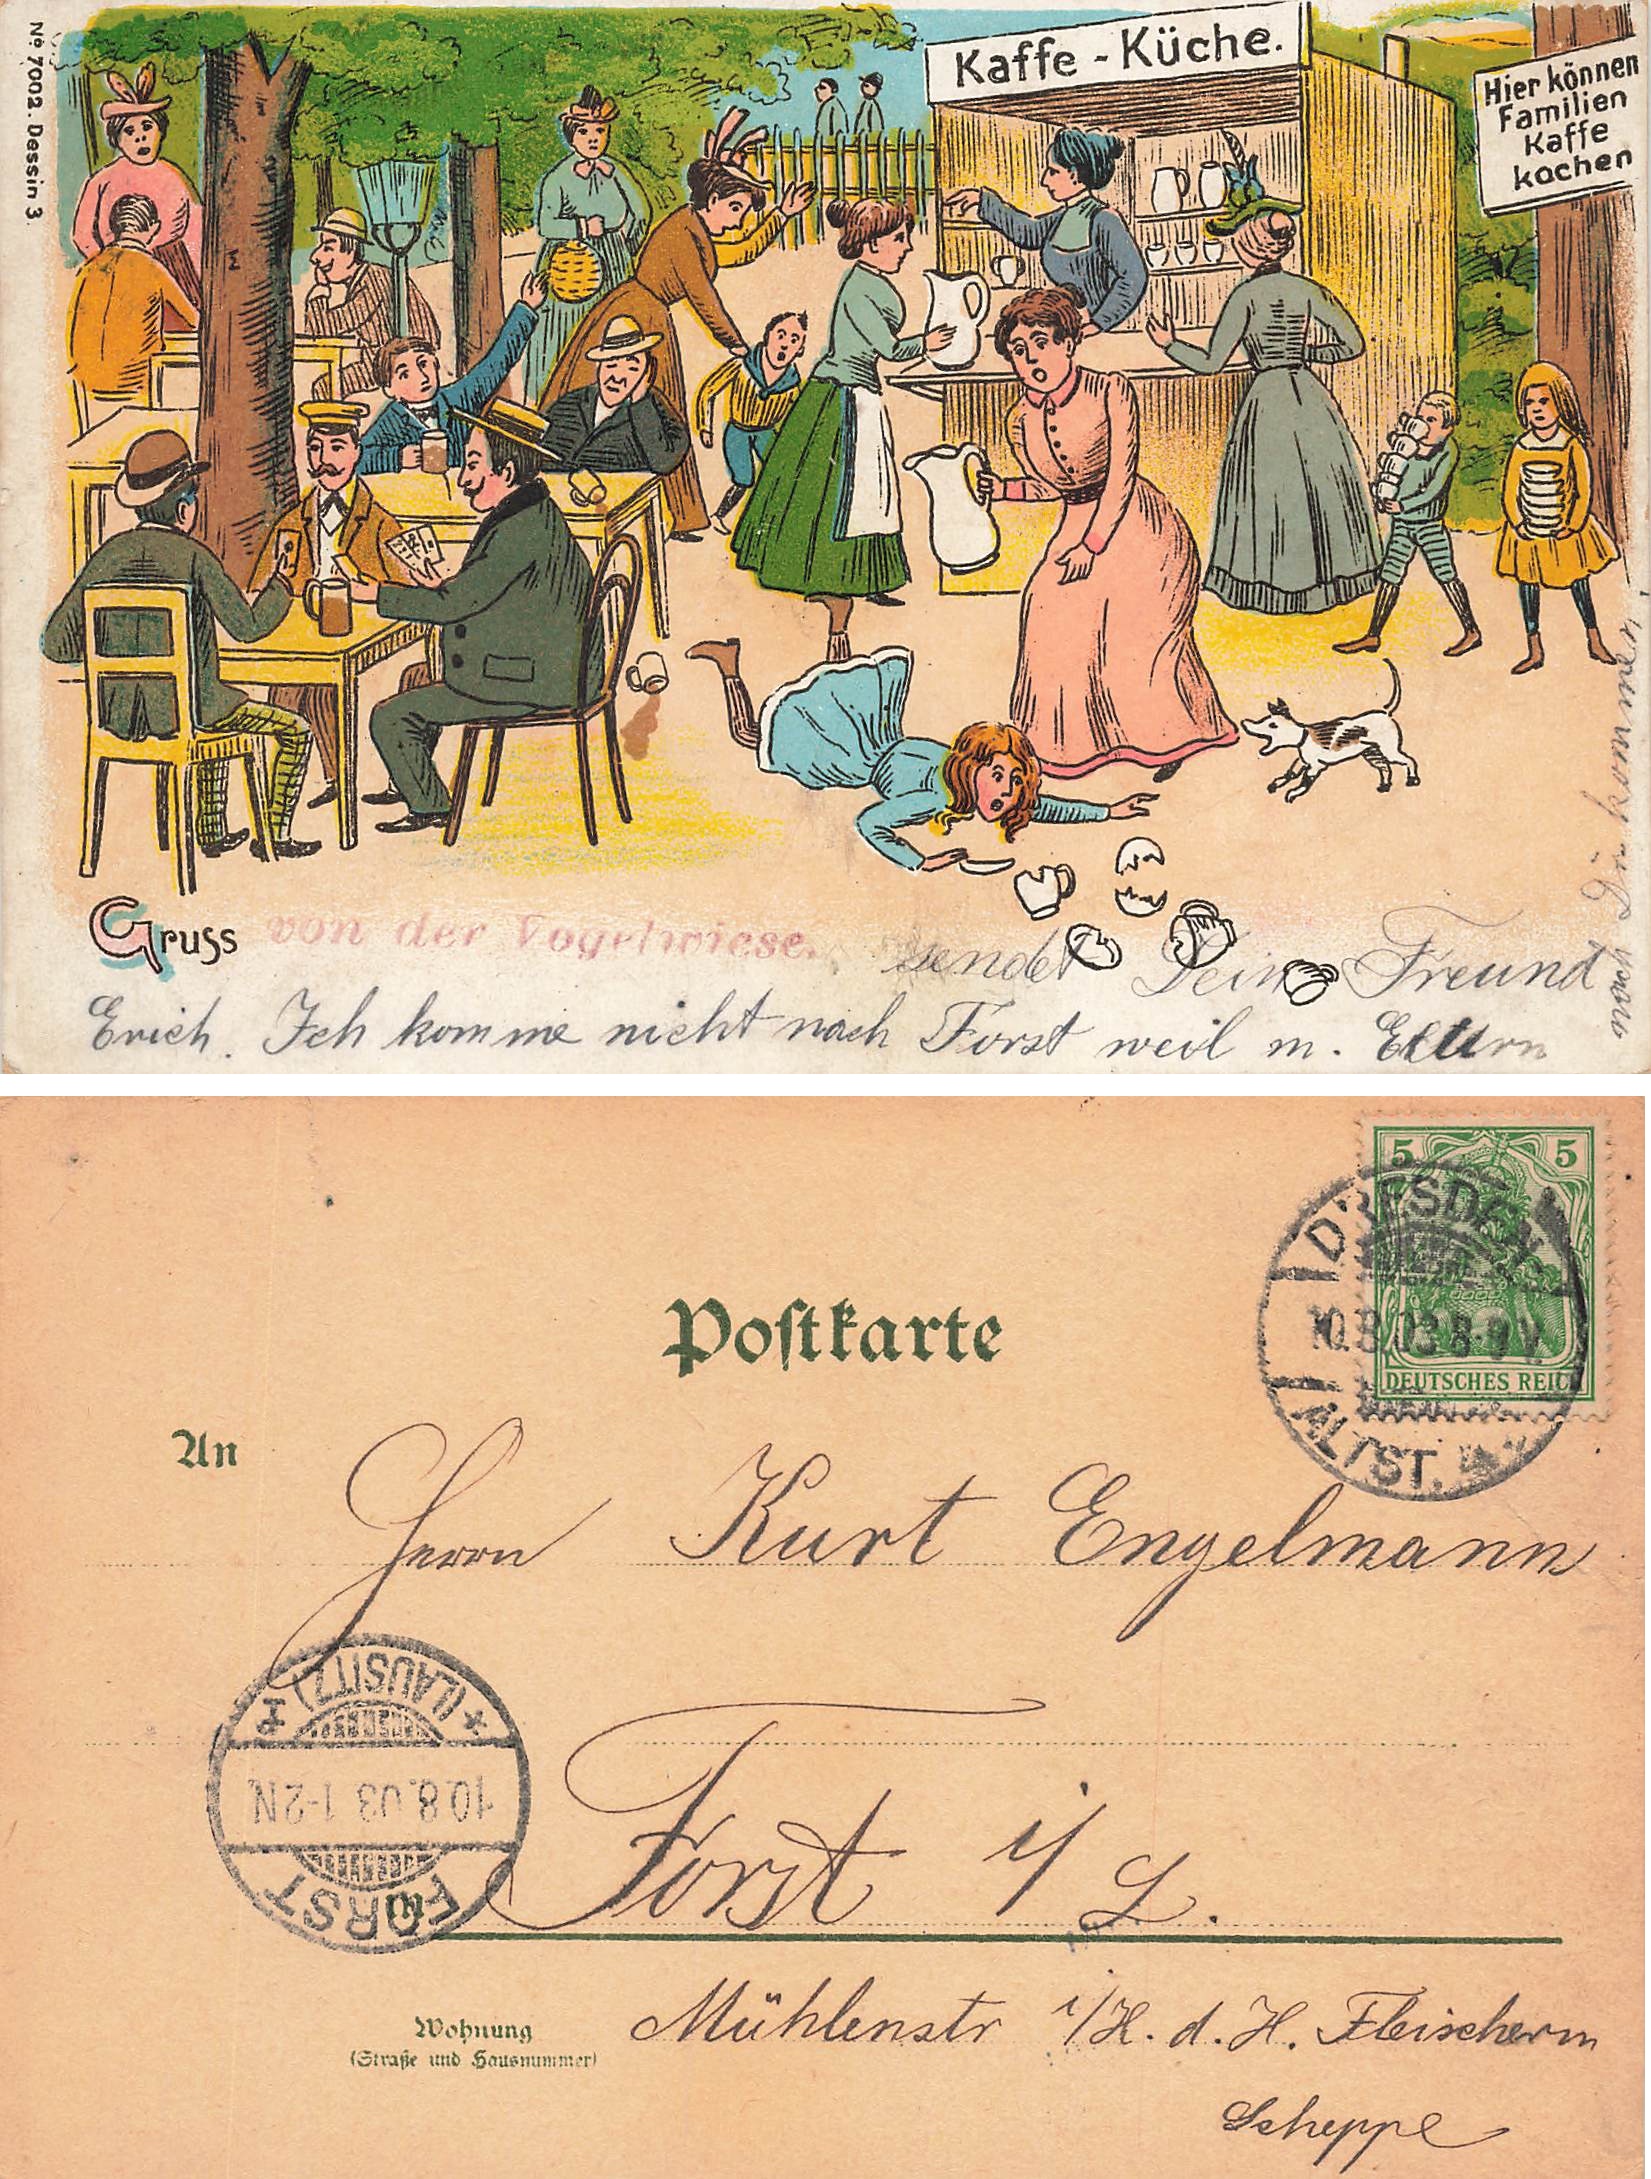 No. 7002. Dessin 3.
Kaffe - Küche.
Hier können
Familien
Kaffe
kochen
Gruss von der Vogelwiese. sendet Dein Freund
Erich. Ich komme nicht nach Forst weil m. Eltern
noch Dr. kommen.
Postkarte
5 5
DEUTSCHES REICH
DRESDEN
10.8.03 8-9 V.
ALTST.
An
Herrn Kurt Engelmann
(LAUSITZ)
10.8.03 1-2N
FORST
in
Forst i/L.
Wohnung
(Straße und Hausnummer)
Mühlenstr i/H. d. H. Fleischerm
Scheppe